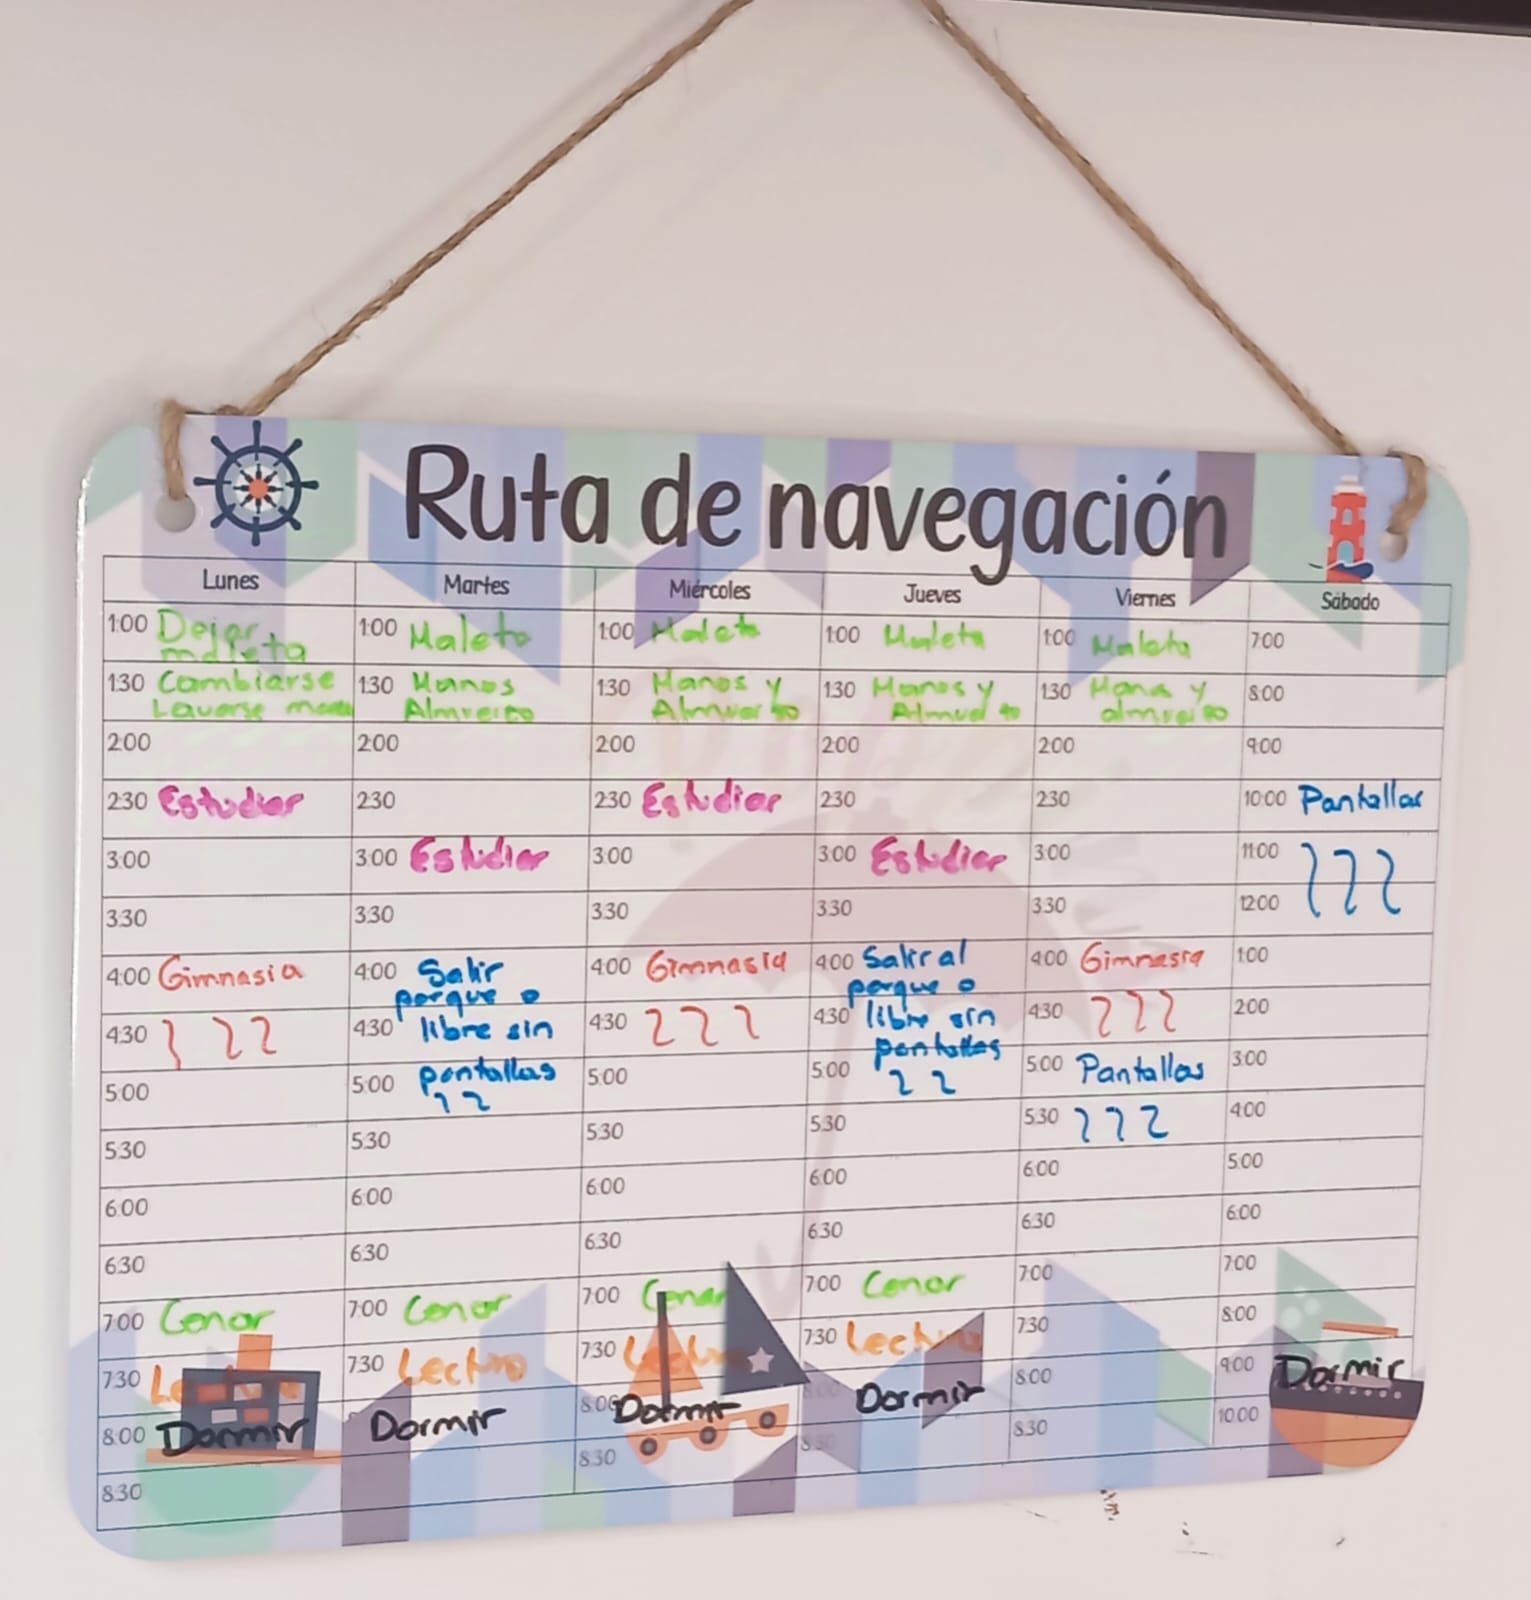 Ruta de navegación
Lunes Martes Miércoles Jueves Viernes Sábado
1:00 Dejar maleta 1:00 Maleta 1:00 Maleta 1:00 Maleta 1:00 Maleta 7:00
1:30 Cambiarse Lavarse 1:30 Manos Almuerzo 1:30 Manos y Almuerzo 1:30 Manos y Almuerzo 1:30 Manos y almuerzo 8:00
2:00 2:00 2:00 2:00 2:00 9:00
2:30 Estudiar 2:30 2:30 Estudiar 2:30 2:30 10:00 Pantallas
3:00 3:00 Estudiar 3:00 3:00 Estudiar 3:00 11:00
3:30 3:30 3:30 3:30 3:30 12:00
4:00 Gimnasia 4:00 Salir parque o 4:00 Gimnasia 4:00 Salir al parque o 4:00 Gimnasia 1:00
4:30 4:30 libre sin 4:30 4:30 libre sin pantallas 4:30 2:00
5:00 5:00 pantallas 5:00 5:00 5:00 Pantallas 3:00
5:30 5:30 5:30 5:30 5:30 4:00
6:00 6:00 6:00 6:00 6:00 5:00
6:30 6:30 6:30 6:30 6:30 6:00
7:00 Cenar 7:00 Cenar 7:00 Cenar 7:00 Cenar 7:00 7:00
7:30 Lectura 7:30 Lectura 7:30 Lectura 7:30 Lectura 7:30 8:00
8:00 Dormir Dormir 8:00 Dormir 8:00 Dormir 8:00 9:00 Dormir
8:30 8:30 8:30 8:30 10:00